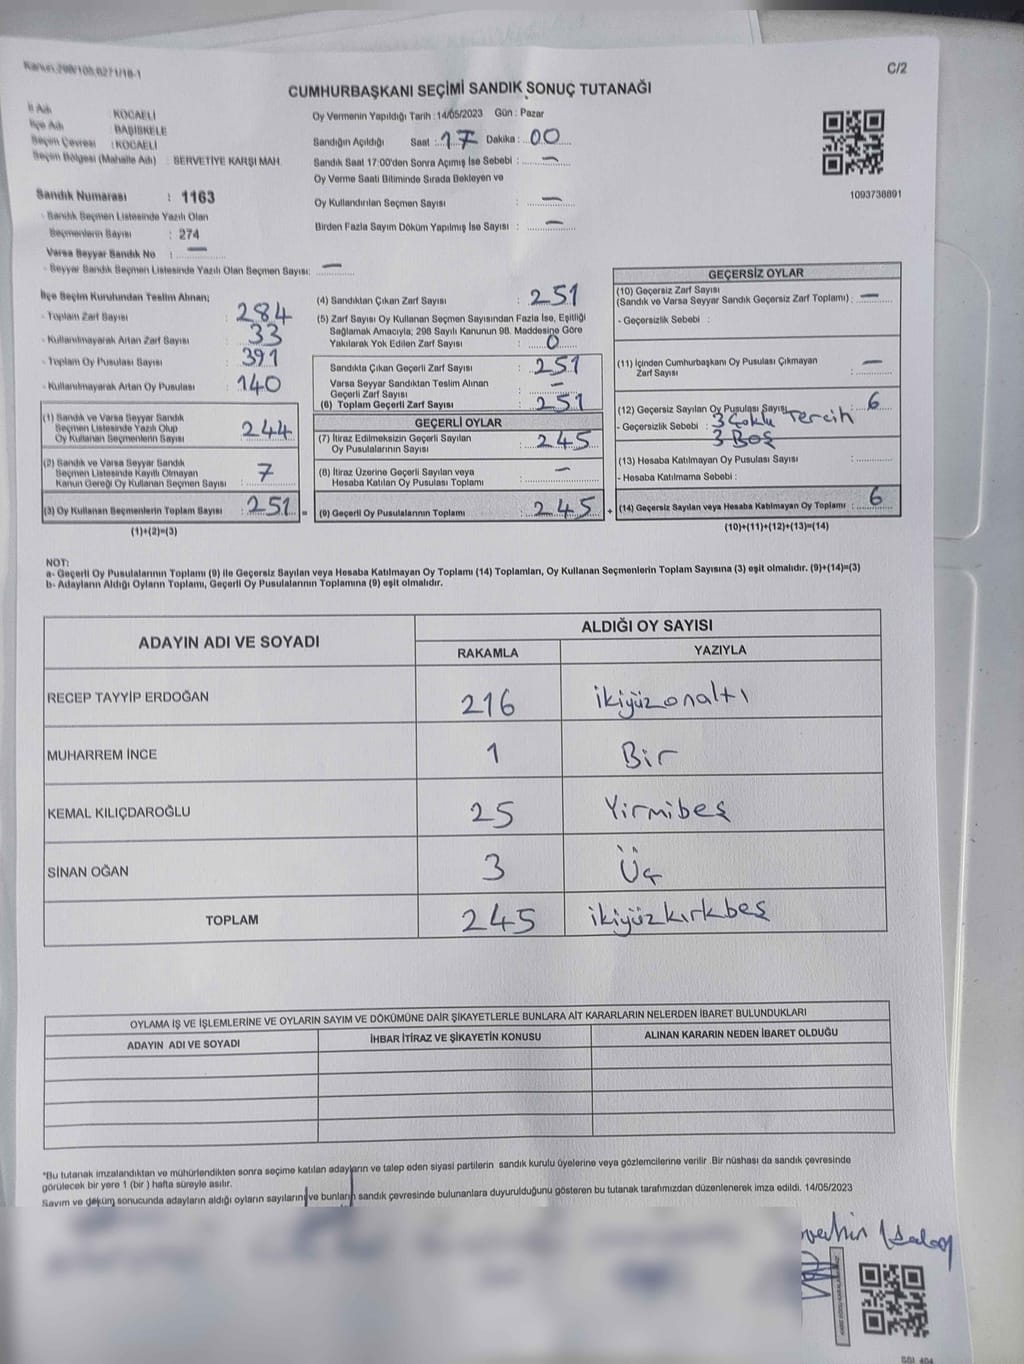 Kanun 298/105,6271/18-1
C/2
CUMHURBAŞKANI SEÇİMİ SANDIK SONUÇ TUTANAĞI
İl Adı : KOCAELİ
İlçe Adı : BAŞİSKELE
Seçim Çevresi : KOCAELİ
Seçim Bölgesi (Mahalle Adı) : SERVETİYE KARŞI MAH.
Sandık Numarası : 1163
- Sandık Seçmen Listesinde Yazılı Olan
Seçmenlerin Sayısı : 274
Varsa Seyyar Sandık No : —
- Seyyar Sandık Seçmen Listesinde Yazılı Olan Seçmen Sayısı: —
Oy Vermenin Yapıldığı Tarih : 14/05/2023 Gün : Pazar
Sandığın Açıldığı Saat : 17 Dakika : 00
Sandık Saat 17:00'den Sonra Açımış İse Sebebi : —
Oy Verme Saati Bitiminde Sırada Bekleyen ve
Oy Kullandırılan Seçmen Sayısı : —
Birden Fazla Sayım Döküm Yapılmış İse Sayısı : —
1093738891
İlçe Seçim Kurulundan Teslim Alınan;
- Toplam Zarf Sayısı : 284
- Kullanılmayarak Artan Zarf Sayısı : 33
- Toplam Oy Pusulası Sayısı : 391
- Kullanılmayarak Artan Oy Pusulası : 140
(1) Sandık ve Varsa Seyyar Sandık
Seçmen Listesinde Yazılı Olup
Oy Kullanan Seçmenlerin Sayısı : 244
(2) Sandık ve Varsa Seyyar Sandık
Seçmen Listesinde Kayıtlı Olmayan
Kanun Gereği Oy Kullanan Seçmen Sayısı : 7
(3) Oy Kullanan Seçmenlerin Toplam Sayısı : 251 =
(1)+(2)=(3)
(4) Sandıktan Çıkan Zarf Sayısı : 251
(5) Zarf Sayısı Oy Kullanan Seçmen Sayısından Fazla İse, Eşitliği
Sağlamak Amacıyla; 298 Sayılı Kanunun 98. Maddesine Göre
Yakılarak Yok Edilen Zarf Sayısı : 0
Sandıkta Çıkan Geçerli Zarf Sayısı : 251
Varsa Seyyar Sandıktan Teslim Alınan
Geçerli Zarf Sayısı : —
(6) Toplam Geçerli Zarf Sayısı : 251
GEÇERLİ OYLAR
(7) İtiraz Edilmeksizin Geçerli Sayılan
Oy Pusulalarının Sayısı : 245
(8) İtiraz Üzerine Geçerli Sayılan veya
Hesaba Katılan Oy Pusulası Toplamı : —
(9) Geçerli Oy Pusulalarının Toplamı : 245 +
GEÇERSİZ OYLAR
(10) Geçersiz Zarf Sayısı
(Sandık ve Varsa Seyyar Sandık Geçersiz Zarf Toplamı) : —
- Geçersizlik Sebebi :
(11) İçinden Cumhurbaşkanı Oy Pusulası Çıkmayan
Zarf Sayısı : —
(12) Geçersiz Sayılan Oy Pusulası Sayısı : 6
- Geçersizlik Sebebi : 3 Çoklu Tercih
3 Boş
(13) Hesaba Katılmayan Oy Pusulası Sayısı :
- Hesaba Katılmama Sebebi :
(14) Geçersiz Sayılan veya Hesaba Katılmayan Oy Toplamı : 6
(10)+(11)+(12)+(13)=(14)
NOT:
a- Geçerli Oy Pusulalarının Toplamı (9) ile Geçersiz Sayılan veya Hesaba Katılmayan Oy Toplamı (14) Toplamları, Oy Kullanan Seçmenlerin Toplam Sayısına (3) eşit olmalıdır. (9)+(14)=(3)
b- Adayların Aldığı Oyların Toplamı, Geçerli Oy Pusulalarının Toplamına (9) eşit olmalıdır.
ADAYIN ADI VE SOYADI
ALDIĞI OY SAYISI
RAKAMLA YAZIYLA
RECEP TAYYİP ERDOĞAN 216 ikiyüzonaltı
MUHARREM İNCE 1 Bir
KEMAL KILIÇDAROĞLU 25 Yirmibeş
SİNAN OĞAN 3 Üç
TOPLAM 245 ikiyüzkırkbeş
OYLAMA İŞ VE İŞLEMLERİNE VE OYLARIN SAYIM VE DÖKÜMÜNE DAİR ŞİKAYETLERLE BUNLARA AİT KARARLARIN NELERDEN İBARET BULUNDUKLARI
ADAYIN ADI VE SOYADI İHBAR İTİRAZ VE ŞİKAYETİN KONUSU ALINAN KARARIN NEDEN İBARET OLDUĞU
*Bu tutanak imzalandıktan ve mühürlendikten sonra seçime katılan adayların ve talep eden siyasi partilerin sandık kurulu üyelerine veya gözlemcilerine verilir .Bir nüshası da sandık çevresinde
görülecek bir yere 1 (bir ) hafta süreyle asılır.
Sayım ve döküm sonucunda adayların aldığı oyların sayılarını ve bunların sandık çevresinde bulunanlara duyurulduğunu gösteren bu tutanak tarafımızdan düzenlenerek imza edildi. 14/05/2023